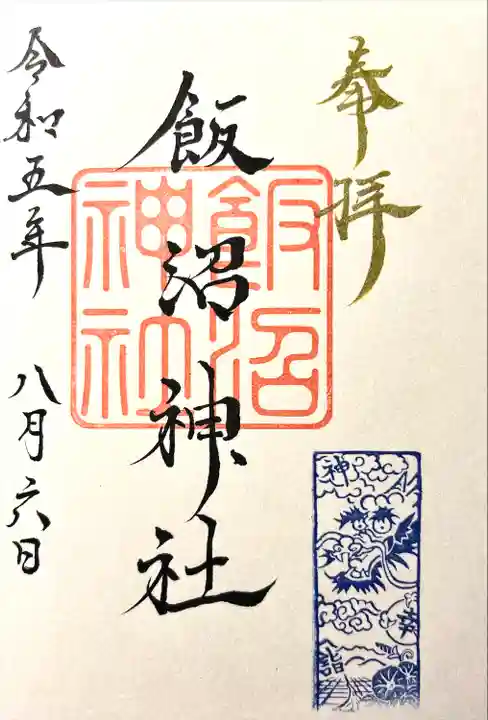 奉拝
飯沼神社
飯沼
神社
令和五年 八月六日
神
詣